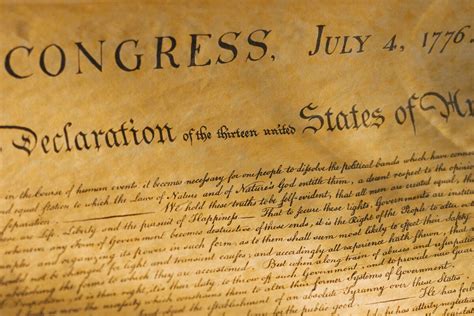 CONGRESS, JULY 4, 1776.
Declaration of the thirteen united States of Am
in the course of human events, it becomes necessary for one people to dissolve the political bands which have conn
and equal station to which the Laws of Nature and of Nature's God entitle them, a decent respect to the opinion
separation. We hold these truths to be self-evident, that all men are created equal, tha
Life, Liberty and the pursuit of Happiness. — That to secure these rights, Governments are
any Form of Government becomes destructive of these ends, it is the Right of the People to alter
its powers in such form, as to them shall seem most likely to effect their Safety
changed for light and transient causes; and accordingly all experience hath shewn, that
the forms to which they are accustomed. But when a long train of abuses and usurpation
it is their duty, to throw off such Government, and to provide new Guard
constrains them to alter their former Systems of Government.
establishment of an absolute Tyranny over these States.
for the public good.
he has utterly neglected